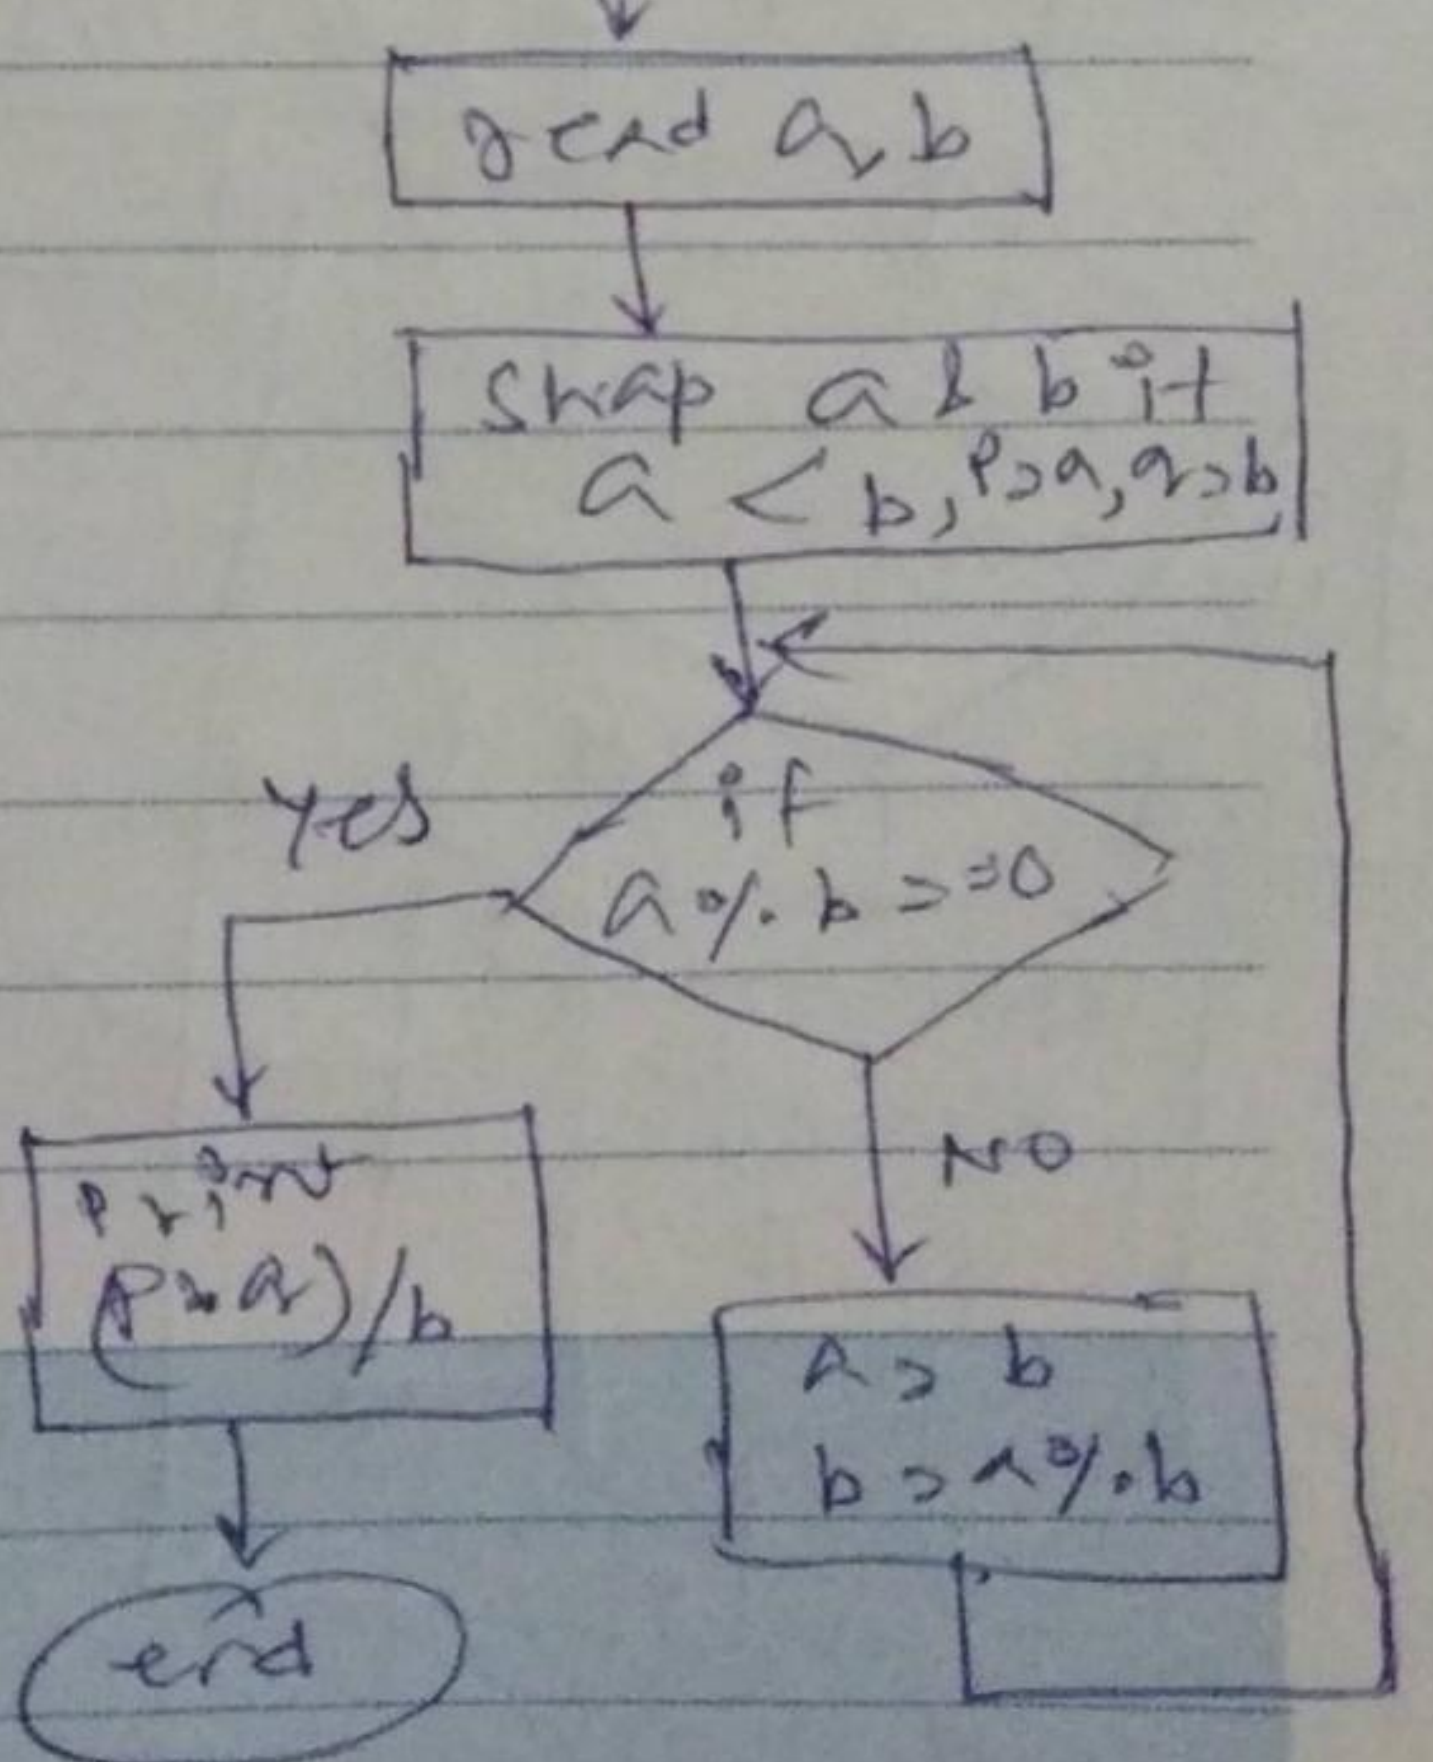 read a, b
Swap a & b if
a < b, P=a, q=b
if
a % b ==0
Yes
NO
print
(P*q)/b
a = b
b = a % b
end